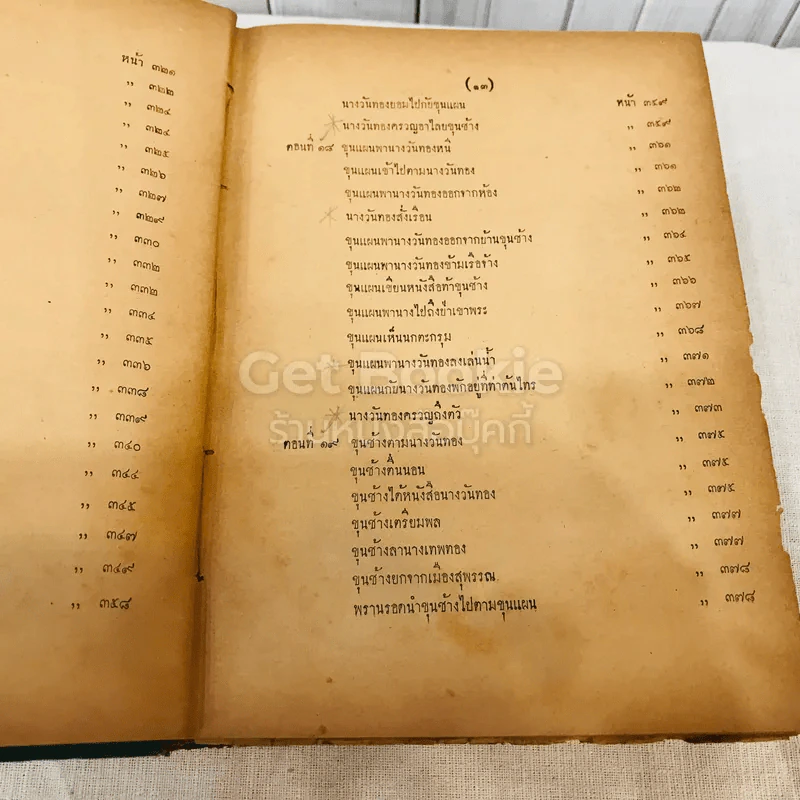 หน้า ๓๒๑
" ๓๒๒
" ๓๒๔
" ๓๒๔
" ๓๒๕
" ๓๒๖
" ๓๒๗
" ๓๒๙
" ๓๓๐
" ๓๓๒
" ๓๓๒
" ๓๓๔
" ๓๓๕
" ๓๓๖
" ๓๓๘
" ๓๓๙
" ๓๔๐
" ๓๔๔
" ๓๔๕
" ๓๔๗
" ๓๔๙
" ๓๕๘
(๑๓)
นางวันทองยอมไปกับขุนแผน หน้า ๓๕๙
นางวันทองครวญอาไลยขุนช้าง " ๓๕๙
ตอนที่ ๑๘ ขุนแผนพานางวันทองหนี " ๓๖๑
ขุนแผนเข้าไปตามนางวันทอง " ๓๖๑
ขุนแผนพานางวันทองออกจากห้อง " ๓๖๒
นางวันทองสั่งเรือน " ๓๖๒
ขุนแผนพานางวันทองออกจากบ้านขุนช้าง " ๓๖๔
ขุนแผนพานางวันทองข้ามเรือจ้าง " ๓๖๕
ขุนแผนเขียนหนังสือท้าขุนช้าง " ๓๖๖
ขุนแผนพานางไปถึงย่ำเขาพระ " ๓๖๗
ขุนแผนเห็นนกตะกรุม " ๓๖๘
ขุนแผนพานางวันทองลงเล่นน้ำ " ๓๗๑
ขุนแผนกับนางวันทองพักอยู่ที่ท่าต้นไทร " ๓๗๒
นางวันทองครวญถึงตัว " ๓๗๓
ตอนที่ ๑๙ ขุนช้างตามนางวันทอง " ๓๗๕
ขุนช้างตื่นนอน " ๓๗๕
ขุนช้างได้หนังสือนางวันทอง " ๓๗๕
ขุนช้างเตรียมพล " ๓๗๗
ขุนช้างลานางเทพทอง " ๓๗๗
ขุนช้างยกจากเมืองสุพรรณ " ๓๗๘
พรานรอดนำขุนช้างไปตามขุนแผน " ๓๗๘
Get Bookie
ร้านหนังสือบุ๊คกี้